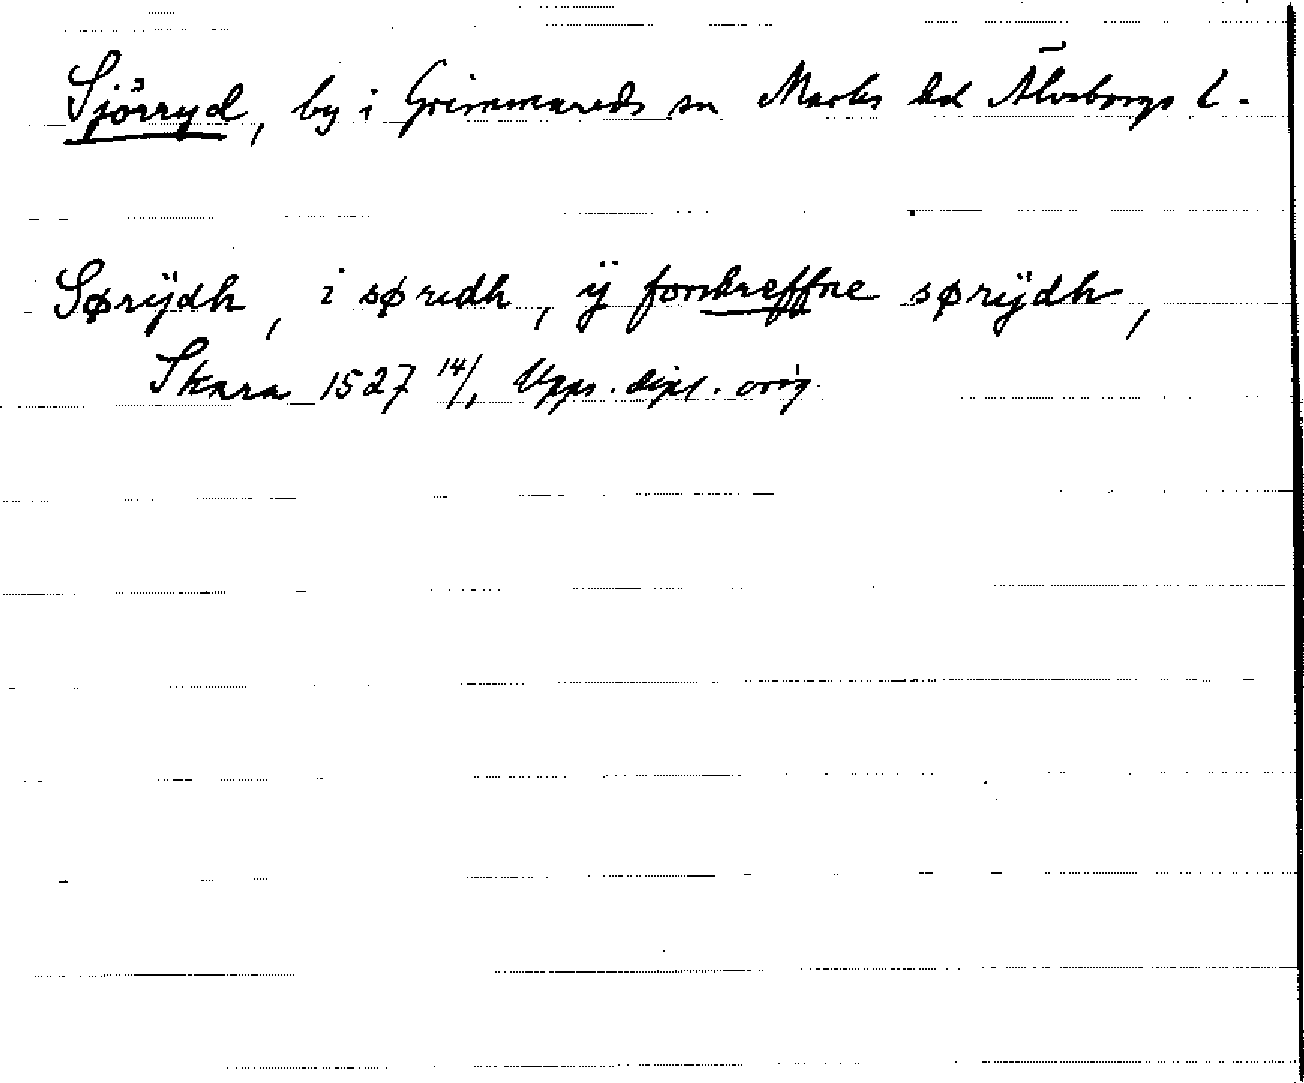 Sjörryd, by i Grimmareds sn Marks hd Älvsborgs l.
Sørÿdh, i søredh, ÿ forskreffne sørÿdh,
Skara 1527 14/1, Upps. dipl. orig.